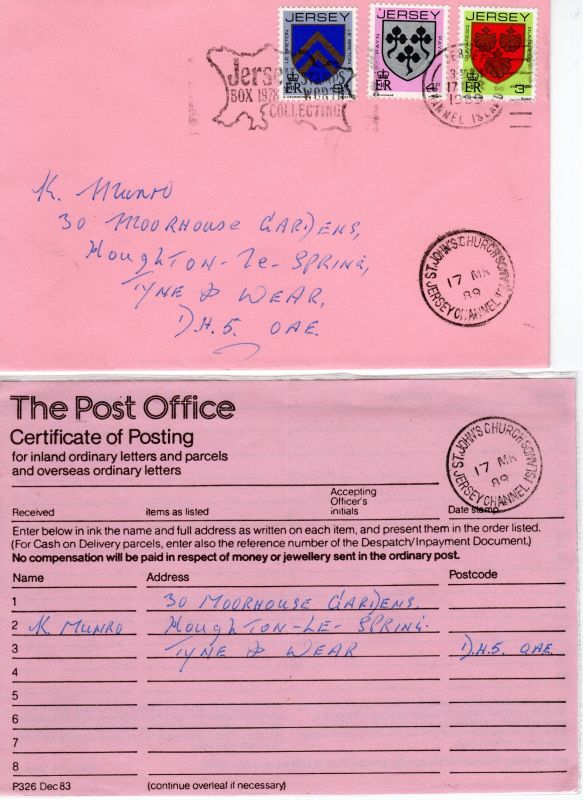 JERSEY
LE BRETON
LE BRETON
EIIR
9
JERSEY
PAYN
PAYN
EIIR
4
JERSEY
DUMARESQ
DUMARESQ
EIIR
3
Jersey STAMPS
BOX 1978 WORTH
COLLECTING
17
1989
CHANNEL ISLANDS
K. Munro
30 MOORHOUSE GARDENS,
HOUGHTON-Le-SPRING,
TYNE & WEAR,
D.H.5. OAE.
ST. JOHN'S CHURCH
17 MR
89
JERSEY CHANNEL ISLANDS
The Post Office
Certificate of Posting
for inland ordinary letters and parcels
and overseas ordinary letters
ST. JOHN'S CHURCH
17 MR
89
JERSEY CHANNEL ISLANDS
Accepting
Officer's
Received items as listed initials Date stamp
Enter below in ink the name and full address as written on each item, and present them in the order listed.
(For Cash on Delivery parcels, enter also the reference number of the Despatch/Inpayment Document.)
No compensation will be paid in respect of money or jewellery sent in the ordinary post.
Name Address Postcode
1 30 MOORHOUSE GARDENS,
2 K. MUNRO HOUGHTON-LE-SPRING.
3 TYNE & WEAR D.H.5. OAE.
4
5
6
7
8
P326 Dec 83 (continue overleaf if necessary)